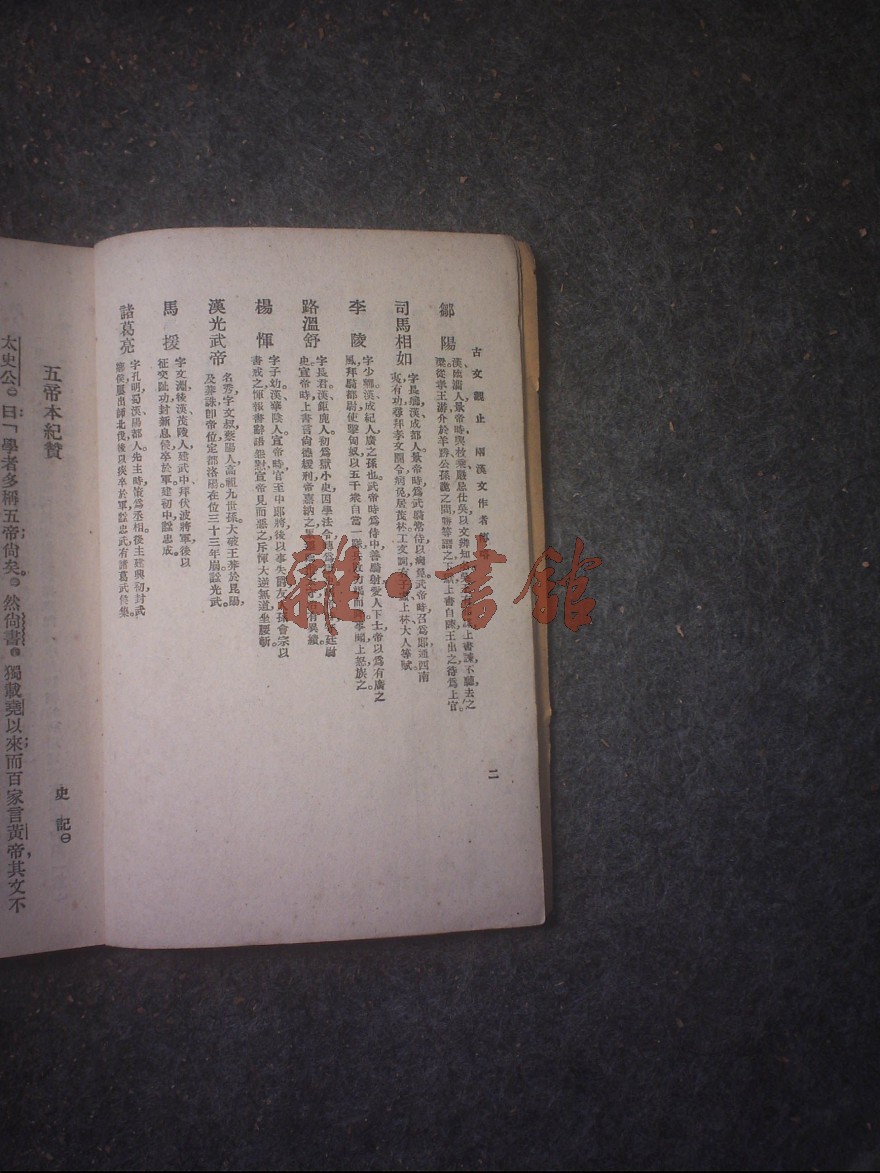 古文觀止　兩漢文作者
二
鄒陽
漢臨淄人景帝時與枚乘嚴忌仕吳以文辯知上書諫不聽去之
梁從孝王游介於羊勝公孫詭之間勝等譖之下獄上書自陳王出之待爲上官
司馬相如
字長卿漢成都人景帝時爲武騎常侍以病免武帝時召爲郎通西南
夷有功尋拜孝文園令病免居茂林工文詞上林大人等賦
李陵
字少卿漢成紀人廣之孫也武帝時爲侍中善騎射愛人下士帝以爲有廣之
風拜騎都尉使擊匈奴以五千衆自當一隊上怒族之
路溫舒
字長君漢鉅鹿人初爲獄小吏因學法令轉爲廷尉
史宣帝時上書言尚德緩刑帝嘉納之有異績
楊惲
字子幼漢華陰人宣帝時官至中郎將後以事失爵友人孫會宗以
書戒之惲報書辭語怨懟宣帝見而惡之斥惲大逆無道坐腰斬
漢光武帝
名秀字文叔蔡陽人高祖九世孫大破王莽於昆陽,
及莽誅卽帝位定都洛陽在位三十三年崩諡光武
馬援
字文淵後漢茂陵人建武中拜伏波將軍後以
征交趾功封新息侯卒於軍建初中諡忠成。
諸葛亮
字孔明蜀漢陽都人先主時策爲丞相後主建興初封武
鄕侯屢出師北伐後以疾卒於軍諡忠武有諸葛武侯集
五帝本紀贊
史記㊀
太史公㊀曰「學者多稱五帝尙矣。㊁然尙書㊂獨載堯以來而百家言黃帝其文不
雜·書館